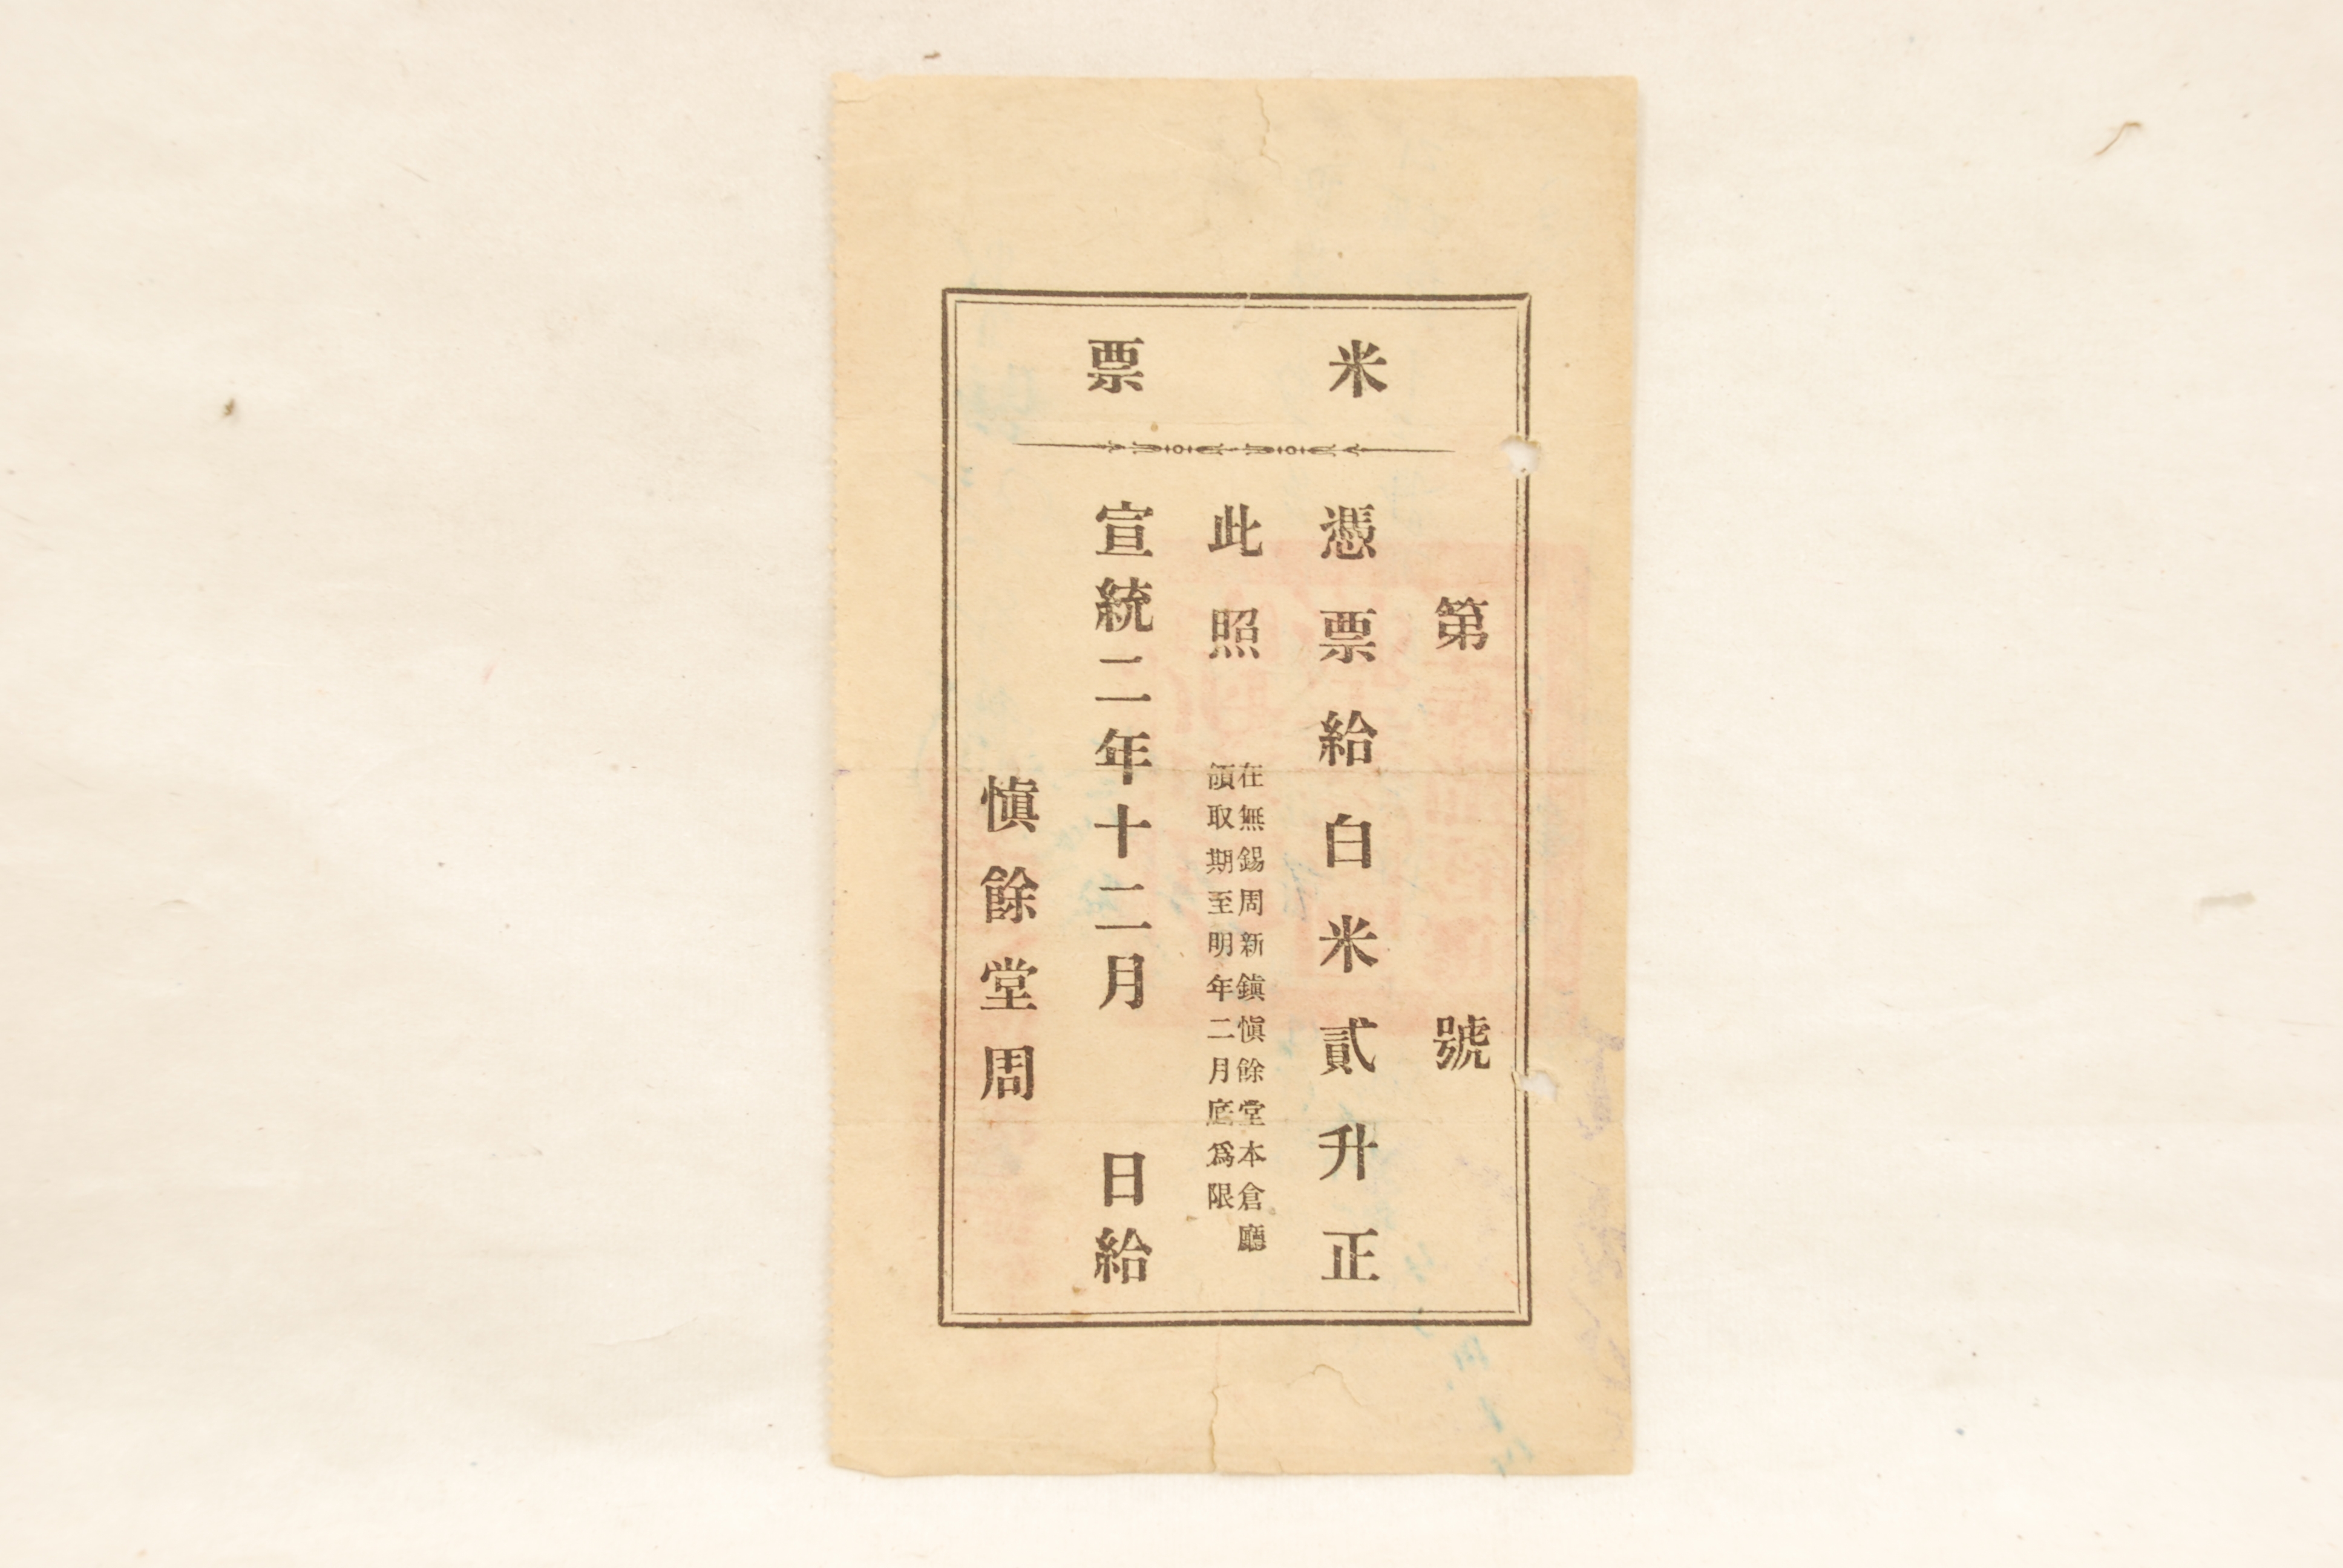 米票
第號
憑票給白米貳升正
此照
在無錫周新鎮愼餘堂本倉廳
領取期至明年二月底爲限
宣統二年十二月 日給
愼餘堂周